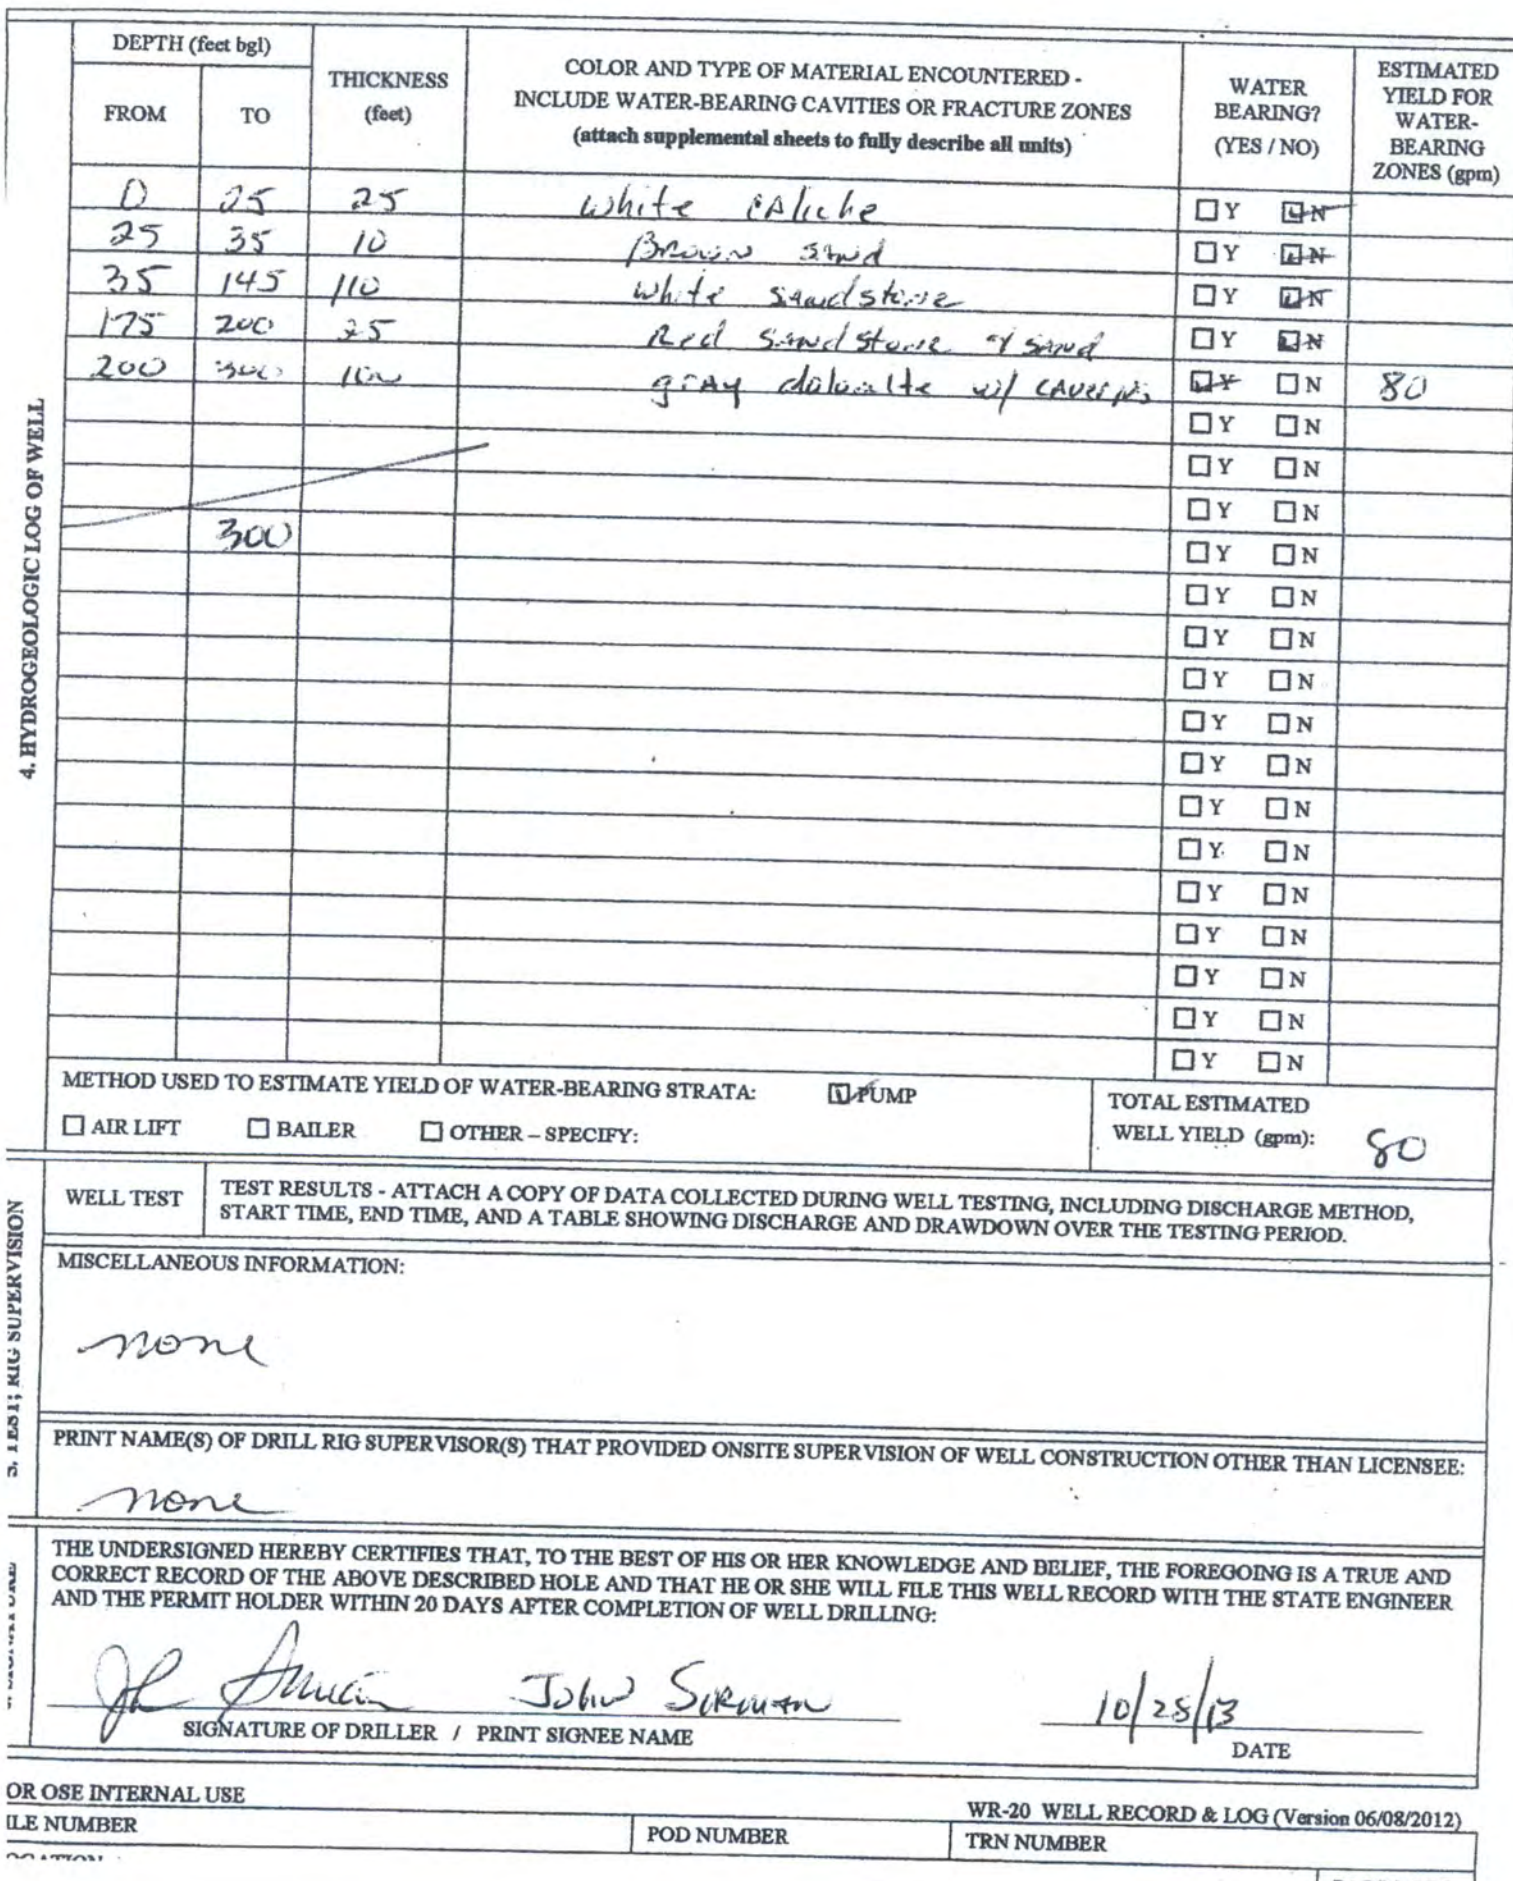 DEPTH (feet bgl)
FROM TO
THICKNESS
(feet)
COLOR AND TYPE OF MATERIAL ENCOUNTERED -
INCLUDE WATER-BEARING CAVITIES OR FRACTURE ZONES
(attach supplemental sheets to fully describe all units)
WATER
BEARING?
(YES / NO)
ESTIMATED
YIELD FOR
WATER-
BEARING
ZONES (gpm)
0 25 25 white caliche Y N
25 35 10 Brown sand Y N
35 145 110 white sandstone Y N
175 200 25 Red sandstone & sand Y N
200 300 100 gray dolomite w/ caverns Y N 80
Y N
Y N
Y N
300 Y N
Y N
Y N
Y N
Y N
Y N
Y N
Y N
Y N
Y N
Y N
Y N
Y N
4. HYDROGEOLOGIC LOG OF WELL
METHOD USED TO ESTIMATE YIELD OF WATER-BEARING STRATA: PUMP
AIR LIFT BAILER OTHER – SPECIFY:
TOTAL ESTIMATED
WELL YIELD (gpm): 80
5. TEST; RIG SUPERVISION
WELL TEST
TEST RESULTS - ATTACH A COPY OF DATA COLLECTED DURING WELL TESTING, INCLUDING DISCHARGE METHOD,
START TIME, END TIME, AND A TABLE SHOWING DISCHARGE AND DRAWDOWN OVER THE TESTING PERIOD.
MISCELLANEOUS INFORMATION:
none
PRINT NAME(S) OF DRILL RIG SUPERVISOR(S) THAT PROVIDED ONSITE SUPERVISION OF WELL CONSTRUCTION OTHER THAN LICENSEE:
none
THE UNDERSIGNED HEREBY CERTIFIES THAT, TO THE BEST OF HIS OR HER KNOWLEDGE AND BELIEF, THE FOREGOING IS A TRUE AND
CORRECT RECORD OF THE ABOVE DESCRIBED HOLE AND THAT HE OR SHE WILL FILE THIS WELL RECORD WITH THE STATE ENGINEER
AND THE PERMIT HOLDER WITHIN 20 DAYS AFTER COMPLETION OF WELL DRILLING:
John 10/28/13
SIGNATURE OF DRILLER / PRINT SIGNEE NAME DATE
OR OSE INTERNAL USE WR-20 WELL RECORD & LOG (Version 06/08/2012)
ILE NUMBER POD NUMBER TRN NUMBER